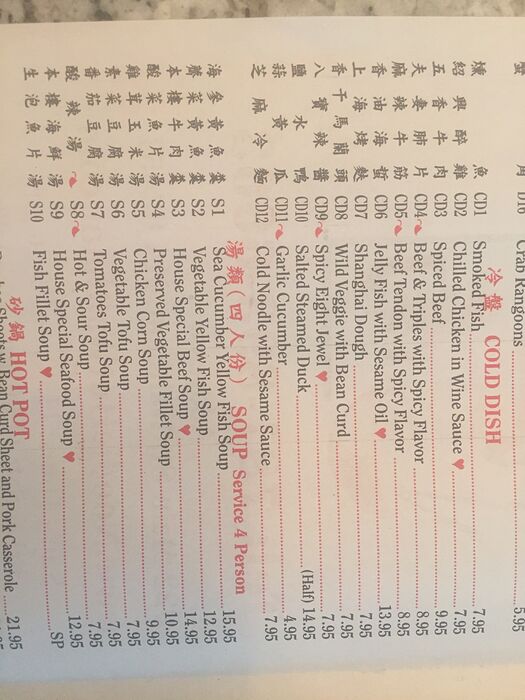 蟹 角 D16 Crab Rangoons 5.95
冷盤 COLD DISH
燻魚 CD1 Smoked Fish 7.95
紹興醉雞 CD2 Chilled Chicken in Wine Sauce ♥ 7.95
五香牛肉 CD3 Spiced Beef 9.95
夫妻肺片 CD4 Beef & Triples with Spicy Flavor 8.95
麻辣牛筋 CD5 Beef Tendon with Spicy Flavor 8.95
香油海蜇 CD6 Jelly Fish with Sesame Oil ♥ 13.95
上海烤麩 CD7 Shanghai Dough 7.95
香干馬蘭頭 CD8 Wild Veggie with Bean Curd 7.95
八寶辣醬 CD9 Spicy Eight Jewel ♥ 7.95
鹽水鴨 CD10 Salted Steamed Duck (Half) 14.95
蒜黃瓜 CD11 Garlic Cucumber 4.95
芝麻冷麵 CD12 Cold Noodle with Sesame Sauce 7.95
湯類(四人份) SOUP Service 4 Person
海參黃魚羹 S1 Sea Cucumber Yellow Fish Soup 15.95
薺菜黃魚羹 S2 Vegetable Yellow Fish Soup 12.95
本樓牛肉羹 S3 House Special Beef Soup ♥ 14.95
酸菜魚片湯 S4 Preserved Vegetable Fillet Soup 10.95
雞茸玉米湯 S5 Chicken Corn Soup 9.95
素菜豆腐湯 S6 Vegetable Tofu Soup 7.95
番茄豆腐湯 S7 Tomatoes Tofu Soup 7.95
酸辣湯 S8 Hot & Sour Soup 7.95
本樓海鮮湯 S9 House Special Seafood Soup ♥ 12.95
生泡魚片湯 S10 Fish Fillet Soup ♥ SP
砂鍋 HOT POT
Shoots w. Bean Curd Sheet and Pork Casserole 21.95